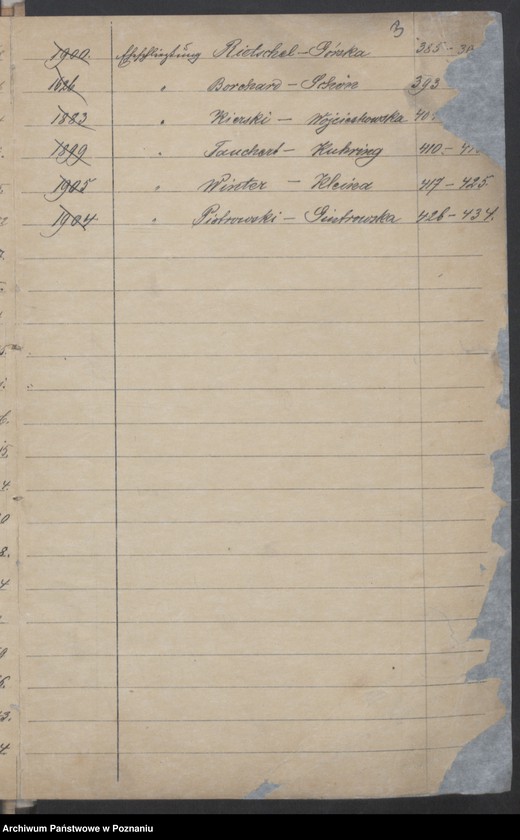 3
1900. Eheschließung Rietschel – Górska 385 – 39
1626 " Borchard – Schön 393
1883 " Kierski – Wojciechowska 40
1899 " Tauchert – Kukring 410 – 41
1905 " Winter – Kleina 417 – 425.
1904 " Piotrowski – Piotrowska 426 – 434.
Archiwum Państwowe w Poznaniu